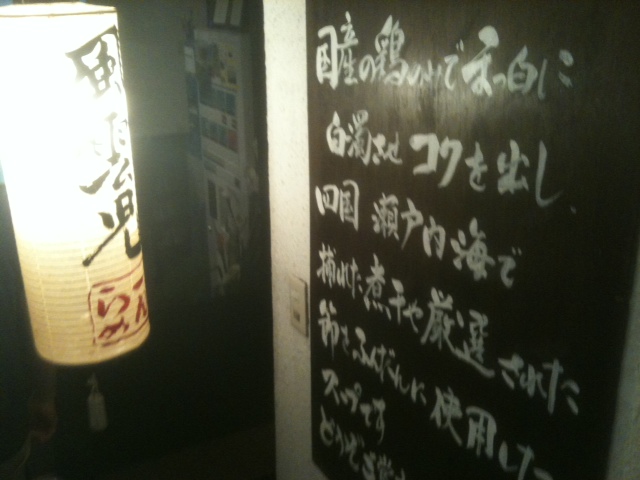 風雲児
らーめん
国産の鶏のみで真っ白に
白濁させ コクを出し、
四国 瀬戸内海で
捕れた煮干や厳選された
節をふんだんに使用した
スープです
どうぞ